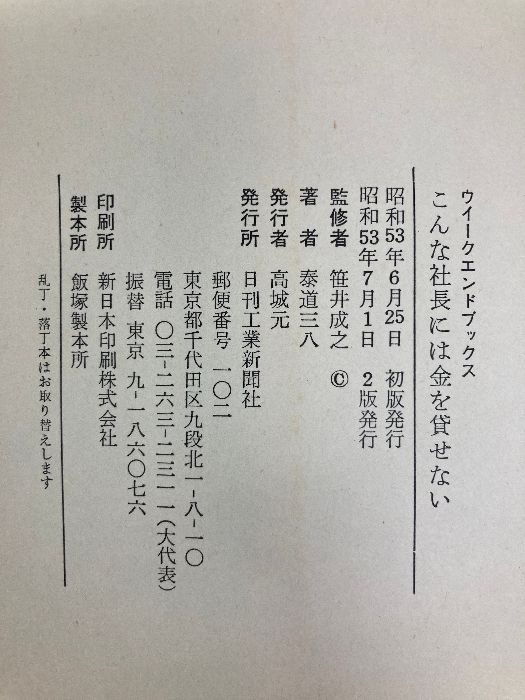 ウイークエンドブックス
こんな社長には金を貸せない
昭和53年6月25日 初版発行
昭和53年7月1日 2版発行
監修者 笹井成之 ©
著者 泰道三八
発行者 高城元
発行所 日刊工業新聞社
郵便番号 一〇二
東京都千代田区九段北一-八-一〇
電話 〇三-二六三-二三一一(大代表)
振替 東京 九-一八六〇七六
印刷所 新日本印刷株式会社
製本所 飯塚製本所
乱丁・落丁本はお取り替えします